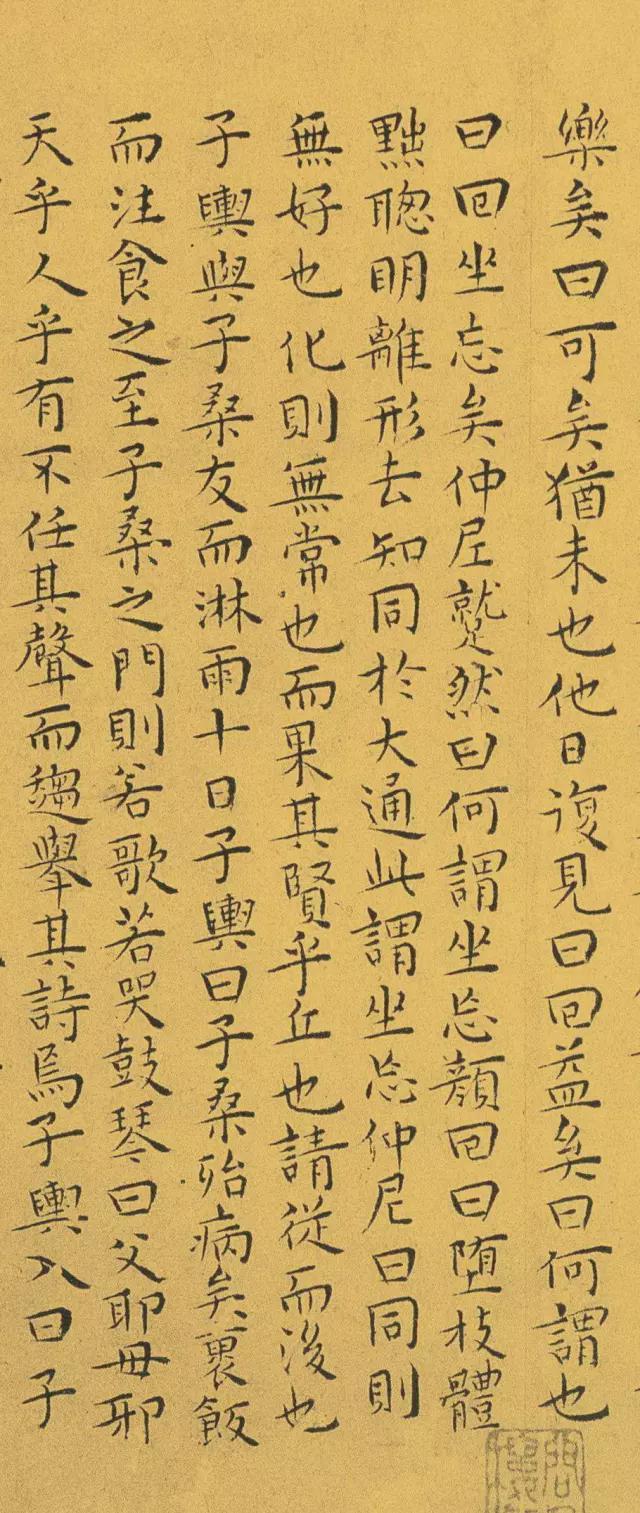 樂矣曰可矣猶未也他日復見曰回益矣曰何謂也
曰回坐忘矣仲尼蹵然曰何謂坐忘顏回曰墮枝體
黜聰明離形去知同於大通此謂坐忘仲尼曰同則
無好也化則無常也而果其賢乎丘也請從而後也
子輿與子桑友而淋雨十日子輿曰子桑殆病矣裹飯
而注食之至子桑之門則若歌若哭鼓琴曰父耶母邪
天乎人乎有不任其聲而趨舉其詩焉子輿入曰子